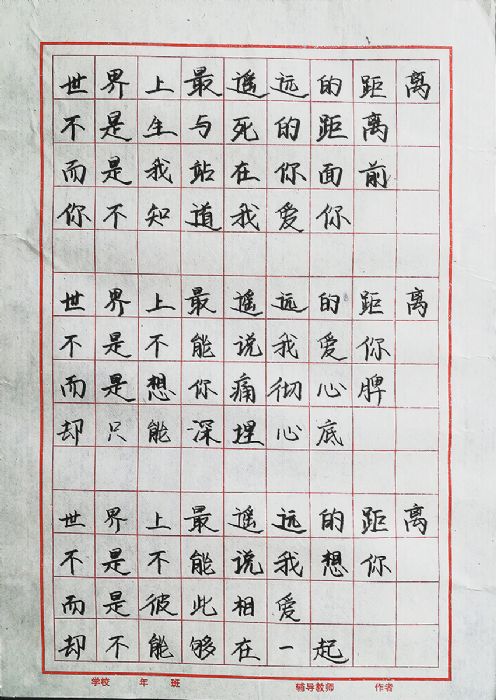 世界上最遥远的距离
不是生与死的距离
而是我站在你面前
你不知道我爱你
世界上最遥远的距离
不是不能说我爱你
而是想你痛彻心脾
却只能深埋心底
世界上最遥远的距离
不是不能说我想你
而是彼此相爱
却不能够在一起
学校 年 班 辅导教师 作者